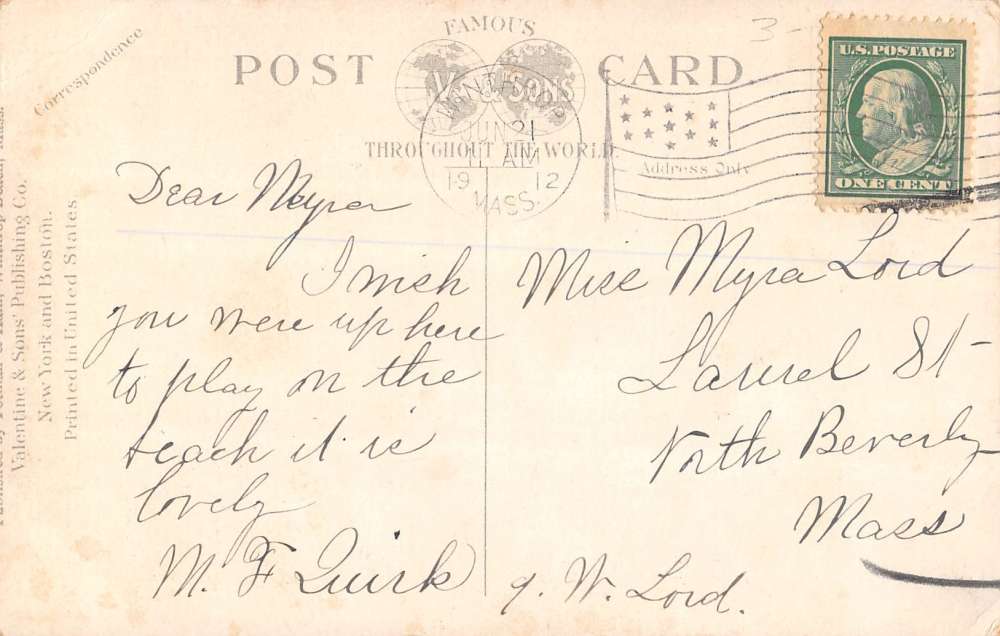 FAMOUS
POST CARD.
& SONS
THROUGHOUT THE WORLD.
Correspondence
Address Only
Valentine & Sons' Publishing Co.
New York and Boston.
Printed in United States
JUN 21
11 AM
19 12
MASS.
U.S. POSTAGE
ONE CENT
3-
Dear Myra
I wish
you were up here
to play on the
beach it is
lovely
M. F Quirk
Miss Myra Lord
Laurel St
North Beverly
Mass
W. Lord.